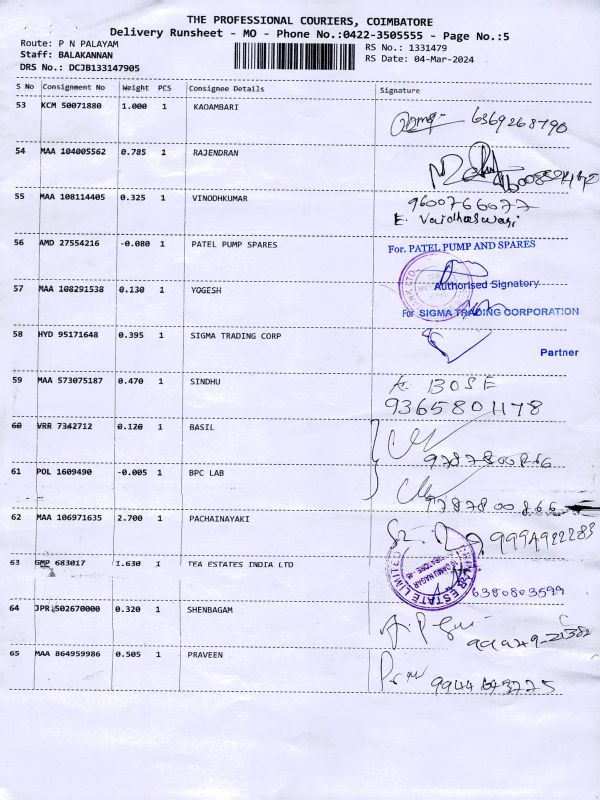 THE PROFESSIONAL COURIERS, COIMBATORE
Delivery Runsheet - MO - Phone No.:0422-3505555 - Page No.:5
Route: P N PALAYAM RS No.: 1331479
Staff: BALAKANNAN RS Date: 04-Mar-2024
DRS No.: DCJB133147905
S No Consignment No Weight PCS Consignee Details Signature
53 KCM 50071880 1.000 1 KAOAMBARI 6369268790
54 MAA 104005562 0.785 1 RAJENDRAN
55 MAA 108114405 0.325 1 VINODHKUMAR 9600766077
E.
56 AMD 27554216 -0.080 1 PATEL PUMP SPARES For. PATEL PUMP AND SPARES
57 MAA 108291538 0.130 1 YOGESH Authorised Signatory
For SIGMA TRADING CORPORATION
58 HYD 95171648 0.395 1 SIGMA TRADING CORP
Partner
59 MAA 573075187 0.470 1 SINDHU BOSE
9365801178
60 VRR 7342712 0.120 1 BASIL
61 POL 1609490 -0.005 1 BPC LAB
9787800866
62 MAA 106971635 2.700 1 PACHAINAYAKI
63 GMP 683017 1.630 1 TEA ESTATES INDIA LTD 6380803599
64 JPR 502670000 0.320 1 SHENBAGAM
65 MAA 864959986 0.505 1 PRAVEEN